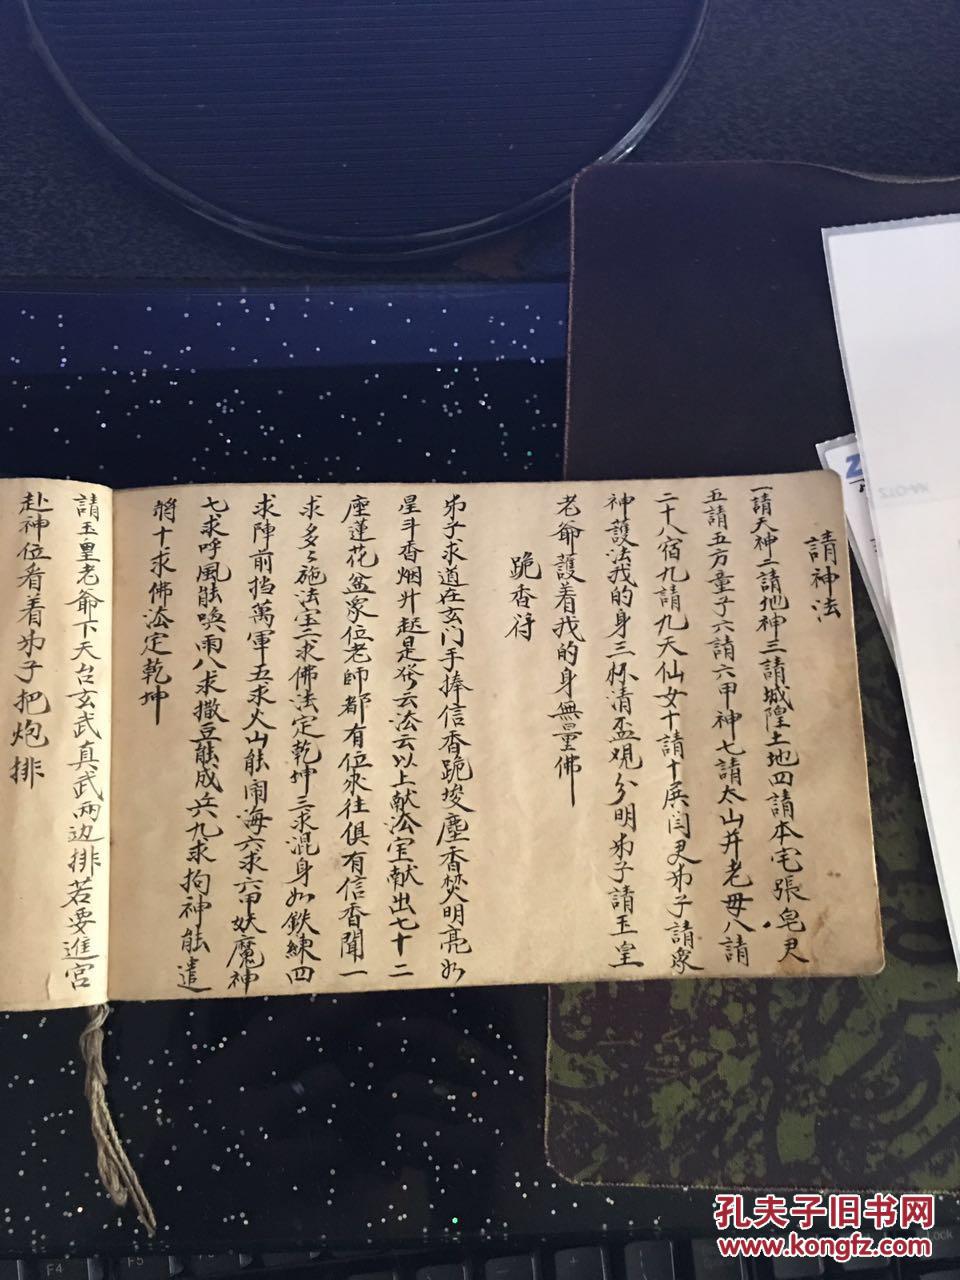 請神法
一請天神二請地神三請城隍土地四請本宅張皂君
五請五方童子六請六甲神七請太山井老母八請
二十八宿九請九天仙女十請十展閆君弟子請衆
神護法我的身三杯清盃观分明弟子請玉皇
老爺護着我的身無量佛
跪香符
弟子求道在玄门手捧信香跪埃塵香焚明亮如
星斗香烟升起是祥云法云以上献法宝献出七十二
座蓮花盆衆位老師都有位來往俱有信香聞一
求多多施法宝二求佛法定乾坤三求混身如鉄練四
求陣前挡萬軍五求火山能闹海六求六甲妖魔神
七求呼風能喚雨八求撒豆能成兵九求拘神能遣
將十求佛法定乾坤
請玉皇老爺下天台玄武真武两边排若要進宮
赴神位看着弟子把炮排
孔夫子旧书网
www.kongfz.com
F4
F5
Lock